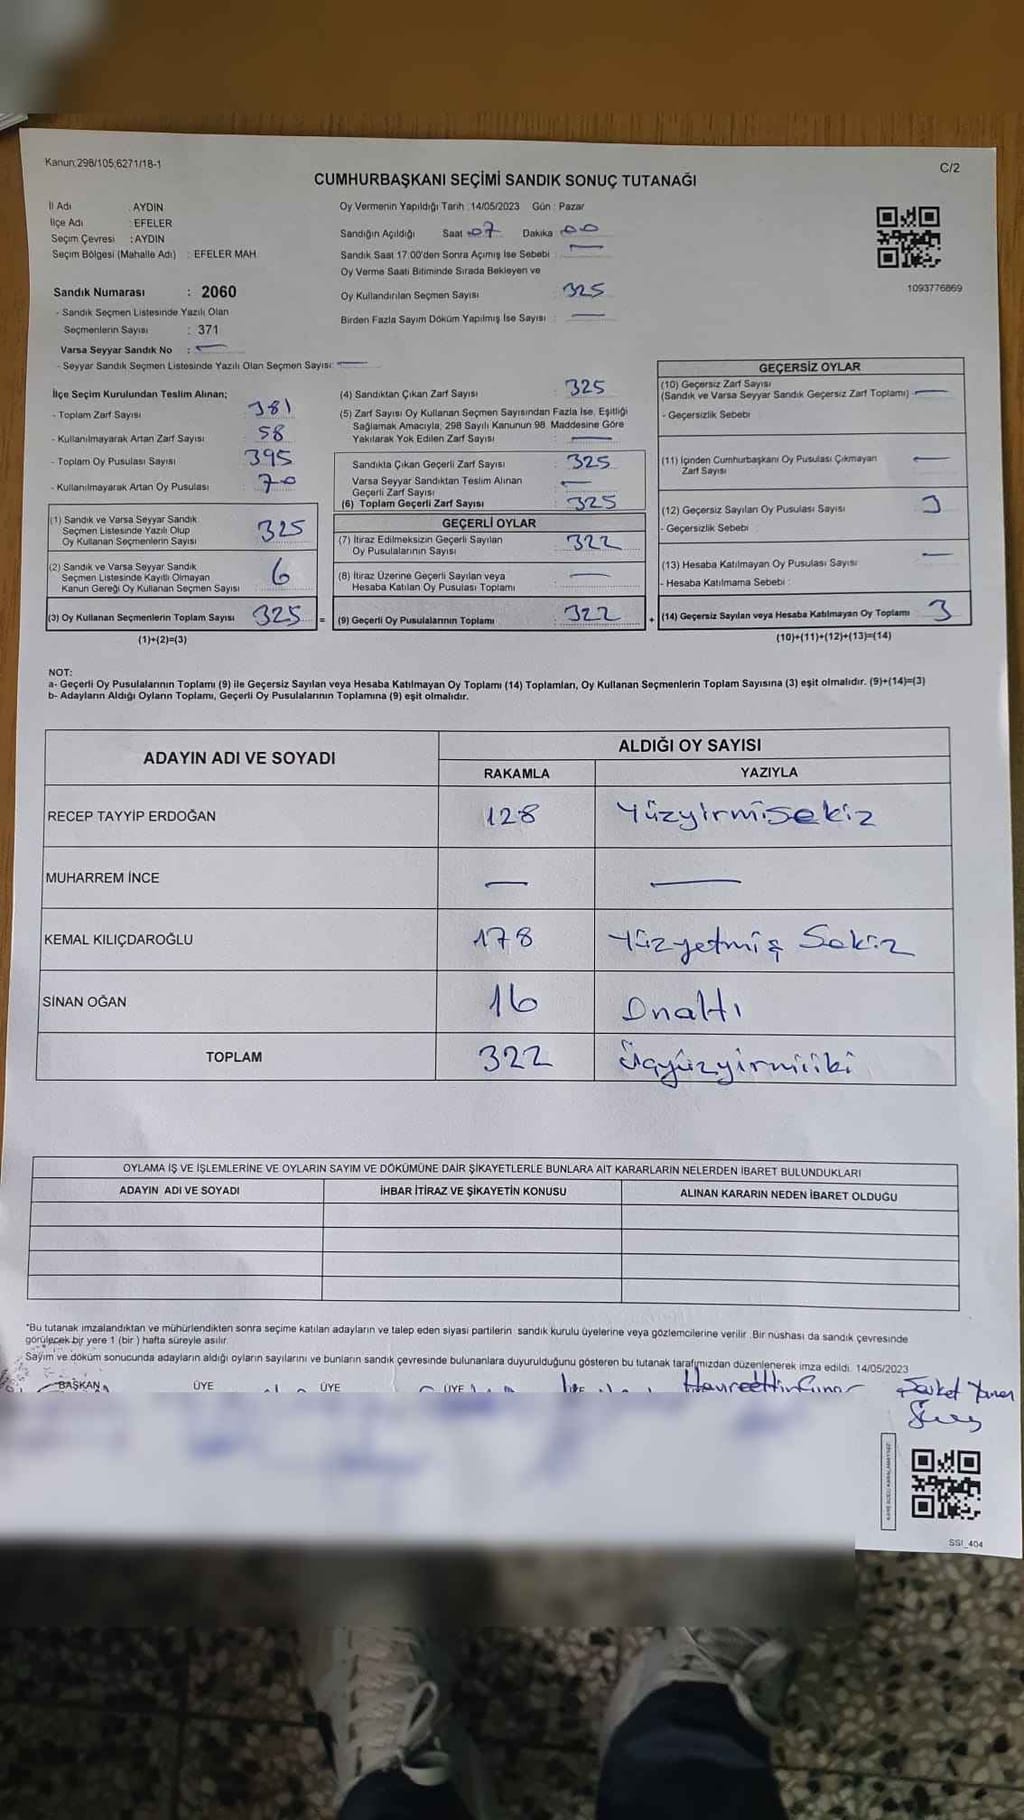 Kanun:298/105;6271/18-1
C/2
CUMHURBAŞKANI SEÇİMİ SANDIK SONUÇ TUTANAĞI
İl Adı : AYDIN
İlçe Adı : EFELER
Seçim Çevresi : AYDIN
Seçim Bölgesi (Mahalle Adı) : EFELER MAH.
Sandık Numarası : 2060
- Sandık Seçmen Listesinde Yazılı Olan
Seçmenlerin Sayısı : 371
Varsa Seyyar Sandık No : —
- Seyyar Sandık Seçmen Listesinde Yazılı Olan Seçmen Sayısı: —
Oy Vermenin Yapıldığı Tarih :14/05/2023 Gün : Pazar
Sandığın Açıldığı Saat : 07 Dakika : 00
Sandık Saat 17:00'den Sonra Açımış İse Sebebi : —
Oy Verme Saati Bitiminde Sırada Bekleyen ve
Oy Kullandırılan Seçmen Sayısı : 325
Birden Fazla Sayım Döküm Yapılmış İse Sayısı : —
1093776869
İlçe Seçim Kurulundan Teslim Alınan;
- Toplam Zarf Sayısı : 381
- Kullanılmayarak Artan Zarf Sayısı : 58
- Toplam Oy Pusulası Sayısı : 395
- Kullanılmayarak Artan Oy Pusulası : 70
(1) Sandık ve Varsa Seyyar Sandık
Seçmen Listesinde Yazılı Olup
Oy Kullanan Seçmenlerin Sayısı : 325
(2) Sandık ve Varsa Seyyar Sandık
Seçmen Listesinde Kayıtlı Olmayan
Kanun Gereği Oy Kullanan Seçmen Sayısı : 6
(3) Oy Kullanan Seçmenlerin Toplam Sayısı : 325 =
(1)+(2)=(3)
(4) Sandıktan Çıkan Zarf Sayısı : 325
(5) Zarf Sayısı Oy Kullanan Seçmen Sayısından Fazla İse, Eşitliği
Sağlamak Amacıyla; 298 Sayılı Kanunun 98. Maddesine Göre
Yakılarak Yok Edilen Zarf Sayısı : —
Sandıkta Çıkan Geçerli Zarf Sayısı : 325
Varsa Seyyar Sandıktan Teslim Alınan
Geçerli Zarf Sayısı : —
(6) Toplam Geçerli Zarf Sayısı : 325
GEÇERLİ OYLAR
(7) İtiraz Edilmeksizin Geçerli Sayılan
Oy Pusulalarının Sayısı : 322
(8) İtiraz Üzerine Geçerli Sayılan veya
Hesaba Katılan Oy Pusulası Toplamı : —
(9) Geçerli Oy Pusulalarının Toplamı : 322 +
GEÇERSİZ OYLAR
(10) Geçersiz Zarf Sayısı
(Sandık ve Varsa Seyyar Sandık Geçersiz Zarf Toplamı) : —
- Geçersizlik Sebebi :
(11) İçinden Cumhurbaşkanı Oy Pusulası Çıkmayan
Zarf Sayısı : —
(12) Geçersiz Sayılan Oy Pusulası Sayısı : 3
- Geçersizlik Sebebi :
(13) Hesaba Katılmayan Oy Pusulası Sayısı : —
- Hesaba Katılmama Sebebi :
(14) Geçersiz Sayılan veya Hesaba Katılmayan Oy Toplamı : 3
(10)+(11)+(12)+(13)=(14)
NOT:
a- Geçerli Oy Pusulalarının Toplamı (9) ile Geçersiz Sayılan veya Hesaba Katılmayan Oy Toplamı (14) Toplamları, Oy Kullanan Seçmenlerin Toplam Sayısına (3) eşit olmalıdır. (9)+(14)=(3)
b- Adayların Aldığı Oyların Toplamı, Geçerli Oy Pusulalarının Toplamına (9) eşit olmalıdır.
ADAYIN ADI VE SOYADI
ALDIĞI OY SAYISI
RAKAMLA YAZIYLA
RECEP TAYYİP ERDOĞAN 128 Yüzyirmisekiz
MUHARREM İNCE — —
KEMAL KILIÇDAROĞLU 178 Yüzyetmiş Sekiz
SİNAN OĞAN 16 Onaltı
TOPLAM 322 Üçyüzyirmiiki
OYLAMA İŞ VE İŞLEMLERİNE VE OYLARIN SAYIM VE DÖKÜMÜNE DAİR ŞİKAYETLERLE BUNLARA AİT KARARLARIN NELERDEN İBARET BULUNDUKLARI
ADAYIN ADI VE SOYADI İHBAR İTİRAZ VE ŞİKAYETİN KONUSU ALINAN KARARIN NEDEN İBARET OLDUĞU
*Bu tutanak imzalandıktan ve mühürlendikten sonra seçime katılan adayların ve talep eden siyasi partilerin sandık kurulu üyelerine veya gözlemcilerine verilir. Bir nüshası da sandık çevresinde
görülecek bir yere 1 (bir ) hafta süreyle asılır.
Sayım ve döküm sonucunda adayların aldığı oyların sayılarını ve bunların sandık çevresinde bulunanlara duyurulduğunu gösteren bu tutanak tarafımızdan düzenlenerek imza edildi. 14/05/2023
BAŞKAN ÜYE ÜYE ÜYE
SSI_404